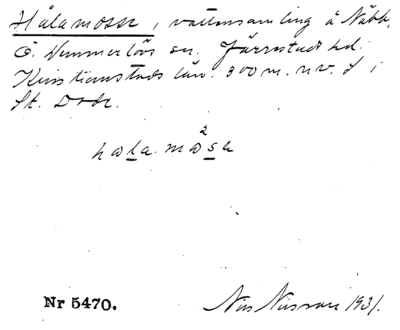 Hålamosse, vattensamling å Näbb,
Ö. Vemmerlövs sn. Järrestads hd.
Kristianstads län. 300 m. n.v. S i
St. Dode.
hala mosa
2
Nr 5470.
Nils Nilsson 1931.